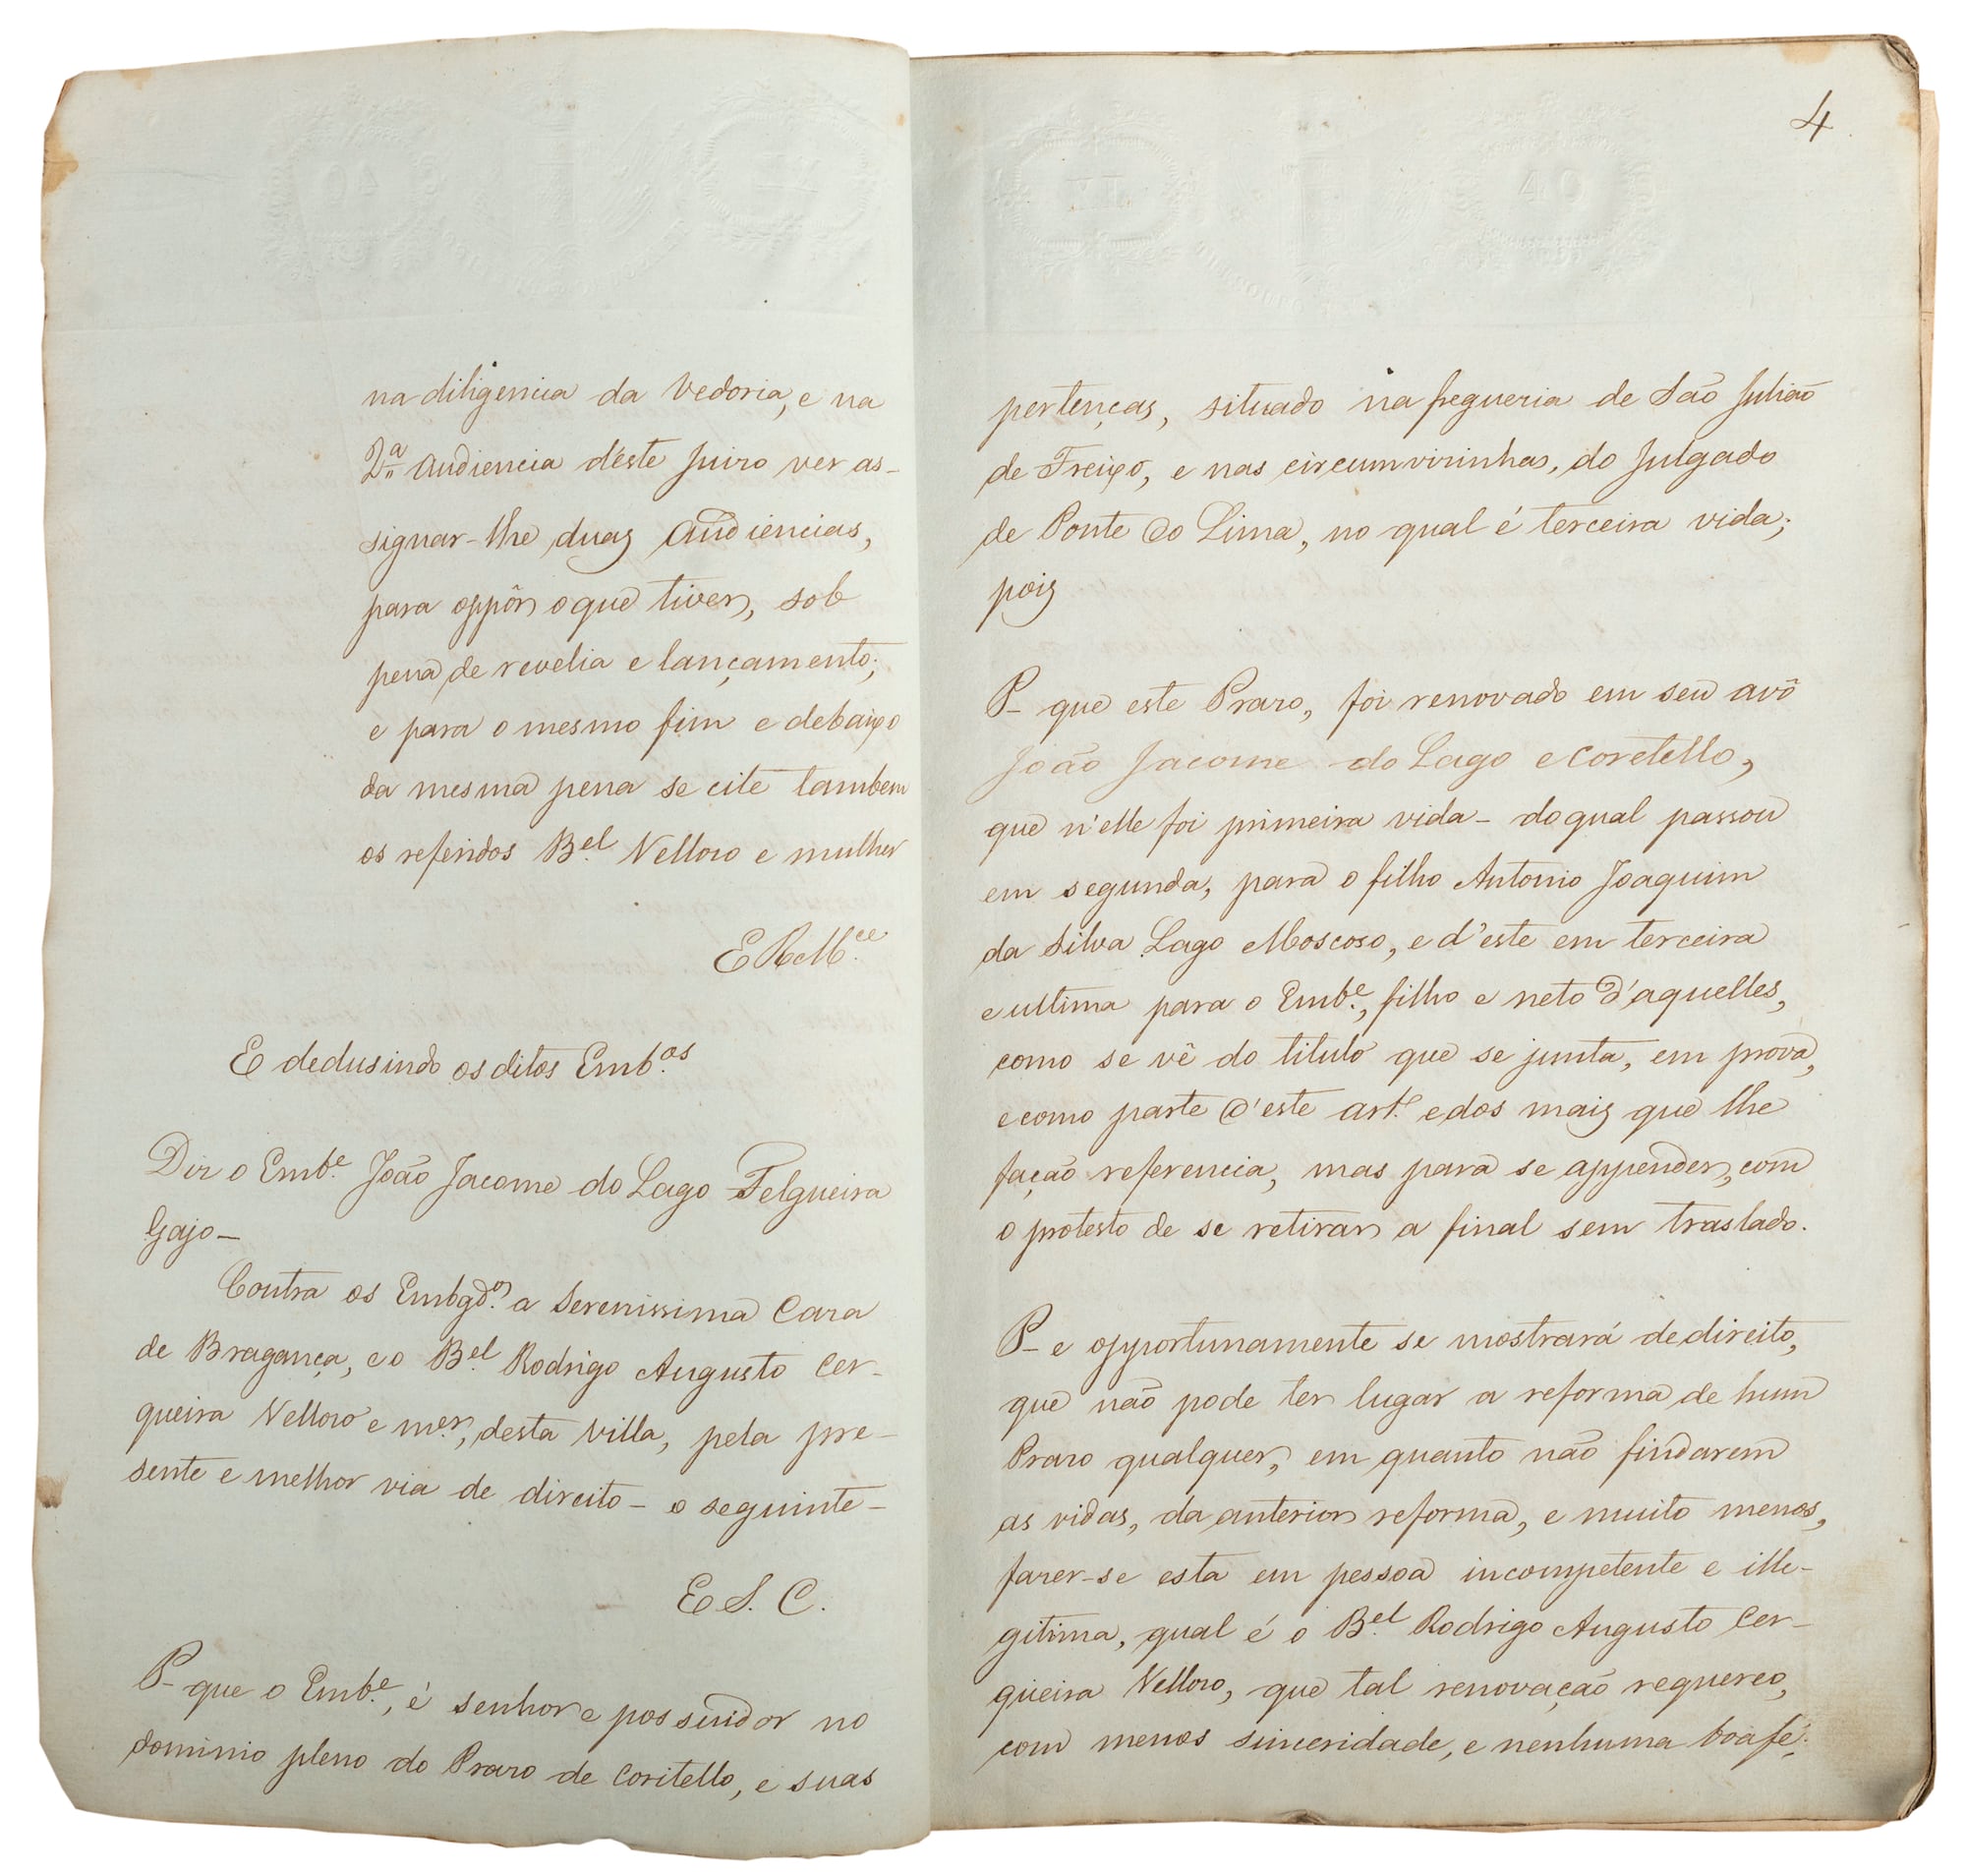 na diligencia da Vedoria, e na
2.ª Audiencia d'este Juizo ver as-
signar-lhe duas Audiencias,
para oppôr o que tiver, sob
pena de revelia e lançamento;
e para o mesmo fim e debaixo
da mesma pena se cite tambem
os referidos B.el Velloso e mulher
E R M.ce
E dedusindo os ditos Emb.os
Diz o Emb.e João Jacome do Lago Felgueira
Gajo-
Contra os Embgd.os a Serenissima Caza
de Bragança, e o B.el Rodrigo Augusto Cer-
queira Velloso e m.er, desta Villa, pela pre-
sente e melhor via de direito - o seguinte -
E S. C.
P- que o Emb.e, é senhor e possuidor no
dominio pleno do Prazo de Coritello, e suas
4
pertenças, situado na fregueria de São Julião
de Freixo, e nas circumvizinhas, do Julgado
de Ponte do Lima, no qual é terceira vida;
pois
P- que este Prazo, foi renovado em seu avô
João Jacome do Lago e Coretello,
que n'elle foi primeira vida - do qual passou
em segunda, para o filho Antonio Joaquim
da Silva Lago Moscoso, e d'este em terceira
e ultima para o Emb.e, filho e neto d'aquelles,
como se vê do titulo que se junta, em prova,
e como parte d'este art.º e dos mais que lhe
fação referencia, mas para se appender, com
o protesto de se retirar a final sem traslado.
P- e opportunamente se mostrará de direito,
que não pode ter lugar a reforma de hum
Prazo qualquer, em quanto não findarem
as vidas, da anterior reforma, e muito menos,
fazer-se esta em pessoa incompetente e ille-
gitima, qual é o B.el Rodrigo Augusto Cer-
queira Velloso, que tal renovação requereo,
com menos sinceridade, e nenhuma boa fé;